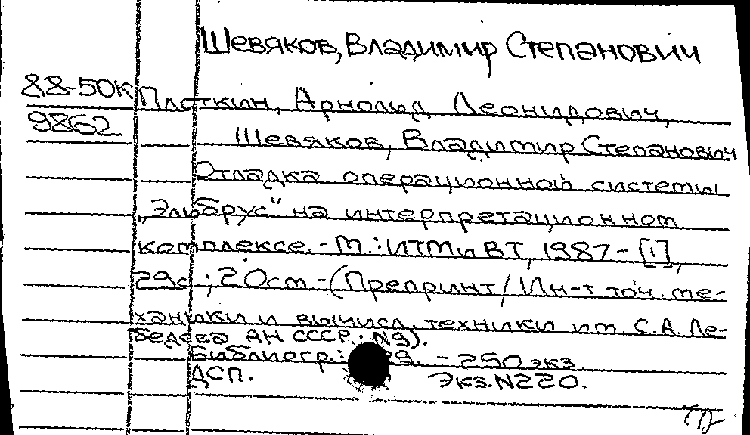 Шевяков, Владимир Степанович
88-50К Плоткин, Арнольд Леонидович,
9862 Шевяков, Владимир Степанович
Отладка операционной системы
"Эльбрус" на интерпретационном
комплексе. - М.: ИТМиВТ, 1987 - [1],
29с.; 20см - (Препринт/Ин-т точ. ме-
ханики и вычисл. техники им С.А. Ле-
бедева АН СССР; N9).
Библиогр.: 29. - 250 экз.
ДСП. Экз. N220.